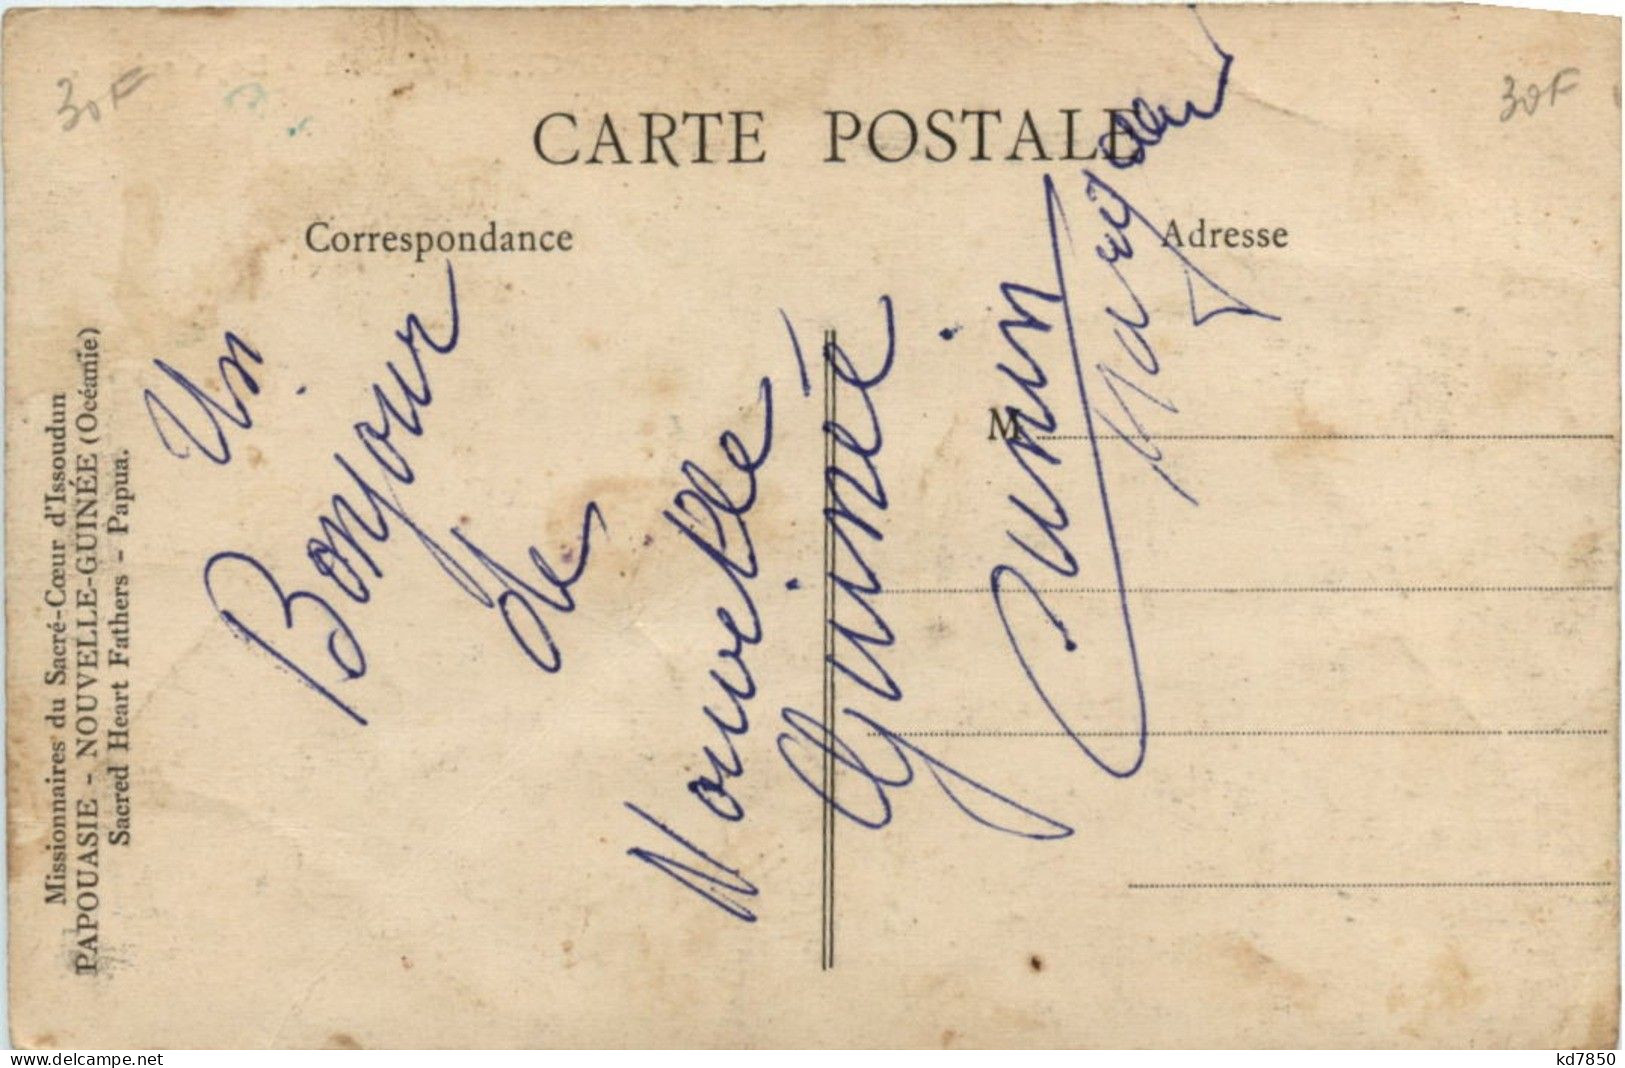 30F
30F
CARTE POSTALE
Correspondance
Adresse
Missionnaires du Sacré-Cœur d'Issoudun
PAPOUASIE - NOUVELLE-GUINÉE (Océanie)
Sacred Heart Fathers - Papua.
Un
Bonjour
de
Nouvelle
Guinée
M
delcampe.net
kd7850